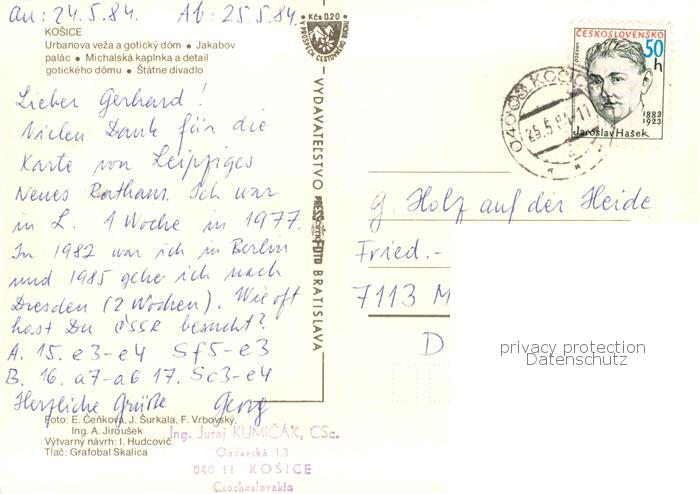 An: 24.5.84. Ab: 25.5.84.
KOŠICE
Urbanova veža a gotický dóm • Jakabov
palác • Michalská kaplnka a detail
gotického dómu • Štátne divadlo
Lieber Gerhard!
Vielen Dank für die
Karte von Leipziges
Neues Rathaus. Ich war
in L. 1 Woche in 1977.
In 1982 war ich in Berlin
und 1985 gehe ich nach
Dresden (2 Wochen). Wie oft
hast Du ČSSR besucht?
A. 15. e3-e4 Sf5-e3
B. 16. a7-a6 17. Sc3-e4
Herzliche Grüße Georg
Foto: E. Čeňková, J. Šurkala, F. Vrbovský,
Ing. A. Jiroušek
Výtvarný návrh: I. Hudcovič
Tlač: Grafobal Skalica
Ing. Juraj KUMIČÁK, CSc.
Ondavská 13
040 11 KOŠICE
Czechoslovakia
Kčs 0.20
VYDAVATEĽSTVO PRESSFOTO BRATISLAVA
ČESKOSLOVENSKO
50
h
1883
1923
Jaroslav Hašek
25.5.84-11
G. Holz auf der Heide
Fried.-
7113 M
D
privacy protection
Datenschutz